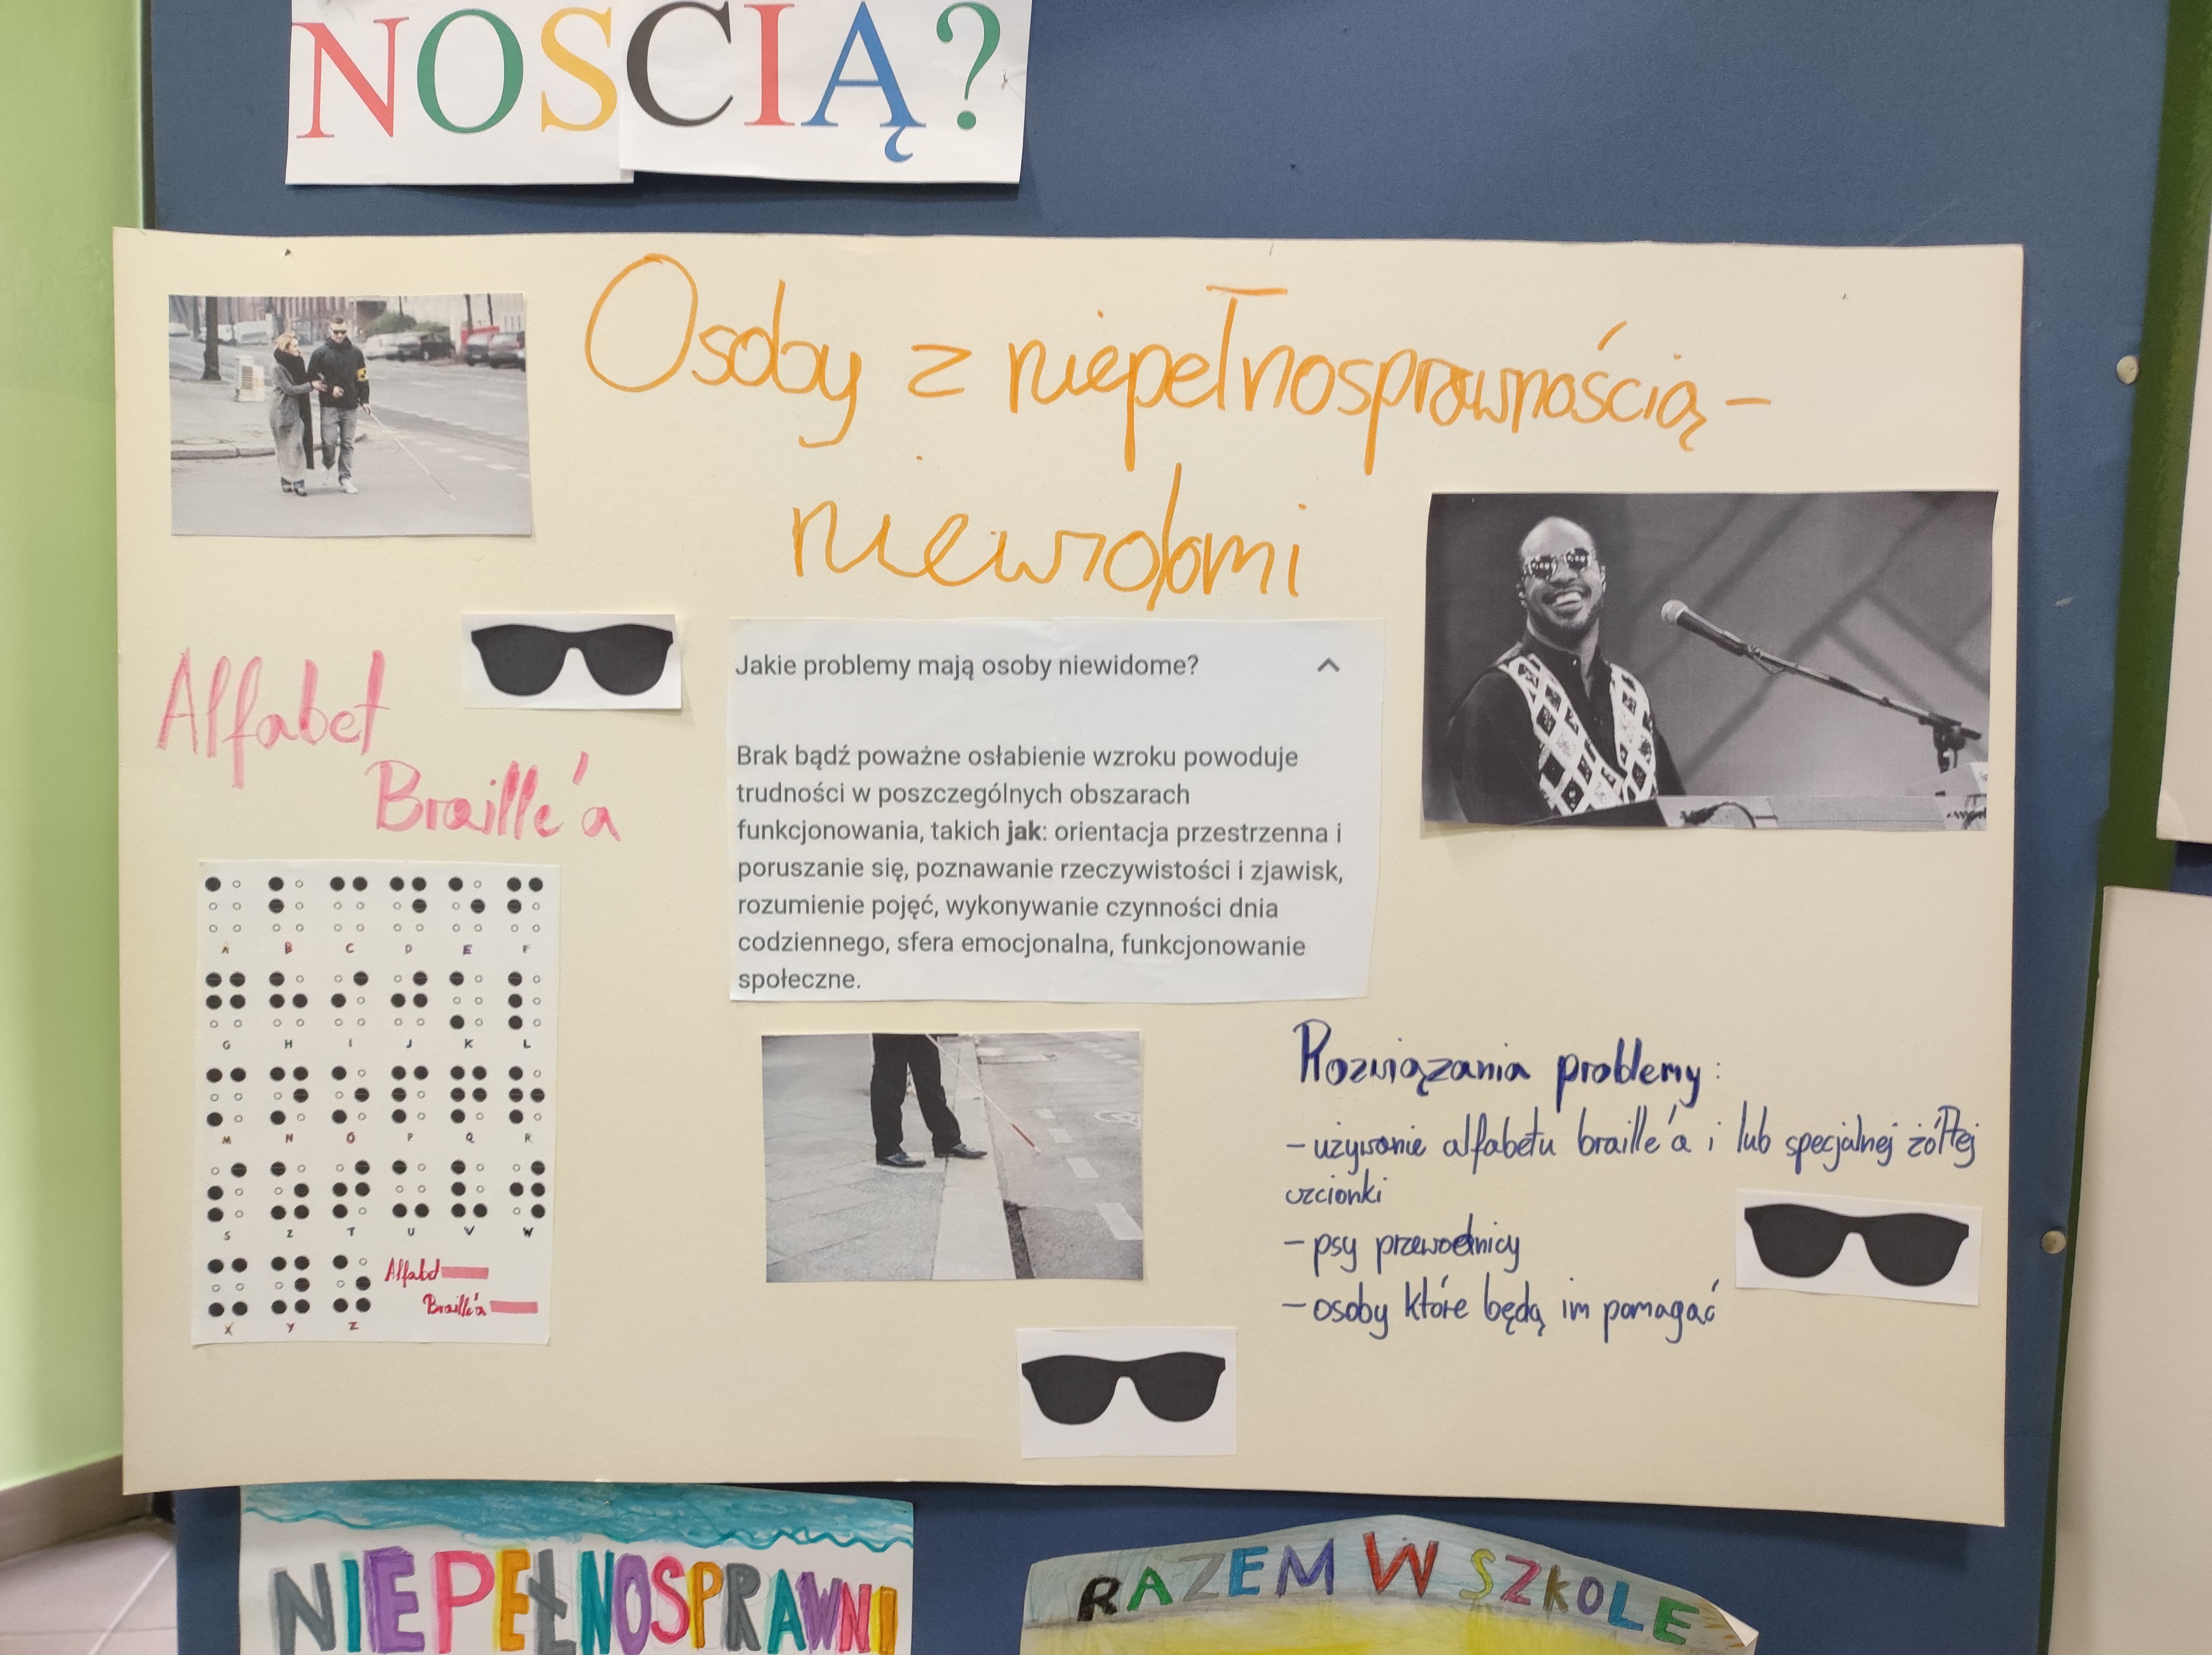 NOSCIĄ?
Osoby z niepełnosprawnością-
niewidomi
Alfabet
Braille'a
Jakie problemy mają osoby niewidome?
Brak bądź poważne osłabienie wzroku powoduje
trudności w poszczególnych obszarach
funkcjonowania, takich jak: orientacja przestrzenna i
poruszanie się, poznawanie rzeczywistości i zjawisk,
rozumienie pojęć, wykonywanie czynności dnia
codziennego, sfera emocjonalna, funkcjonowanie
społeczne.
A B C D E F
G H I J K L
M N O P Q R
S Z T U V W
X Y Z
Alfabet
Braille'a
Rozwiązania problemy:
- używanie alfabetu braille'a i lub specjalnej żółtej
czcionki
- psy przewodnicy
- osoby które będą im pomagać
NIEPEŁNOSPRAWNI
RAZEM W SZKOLE